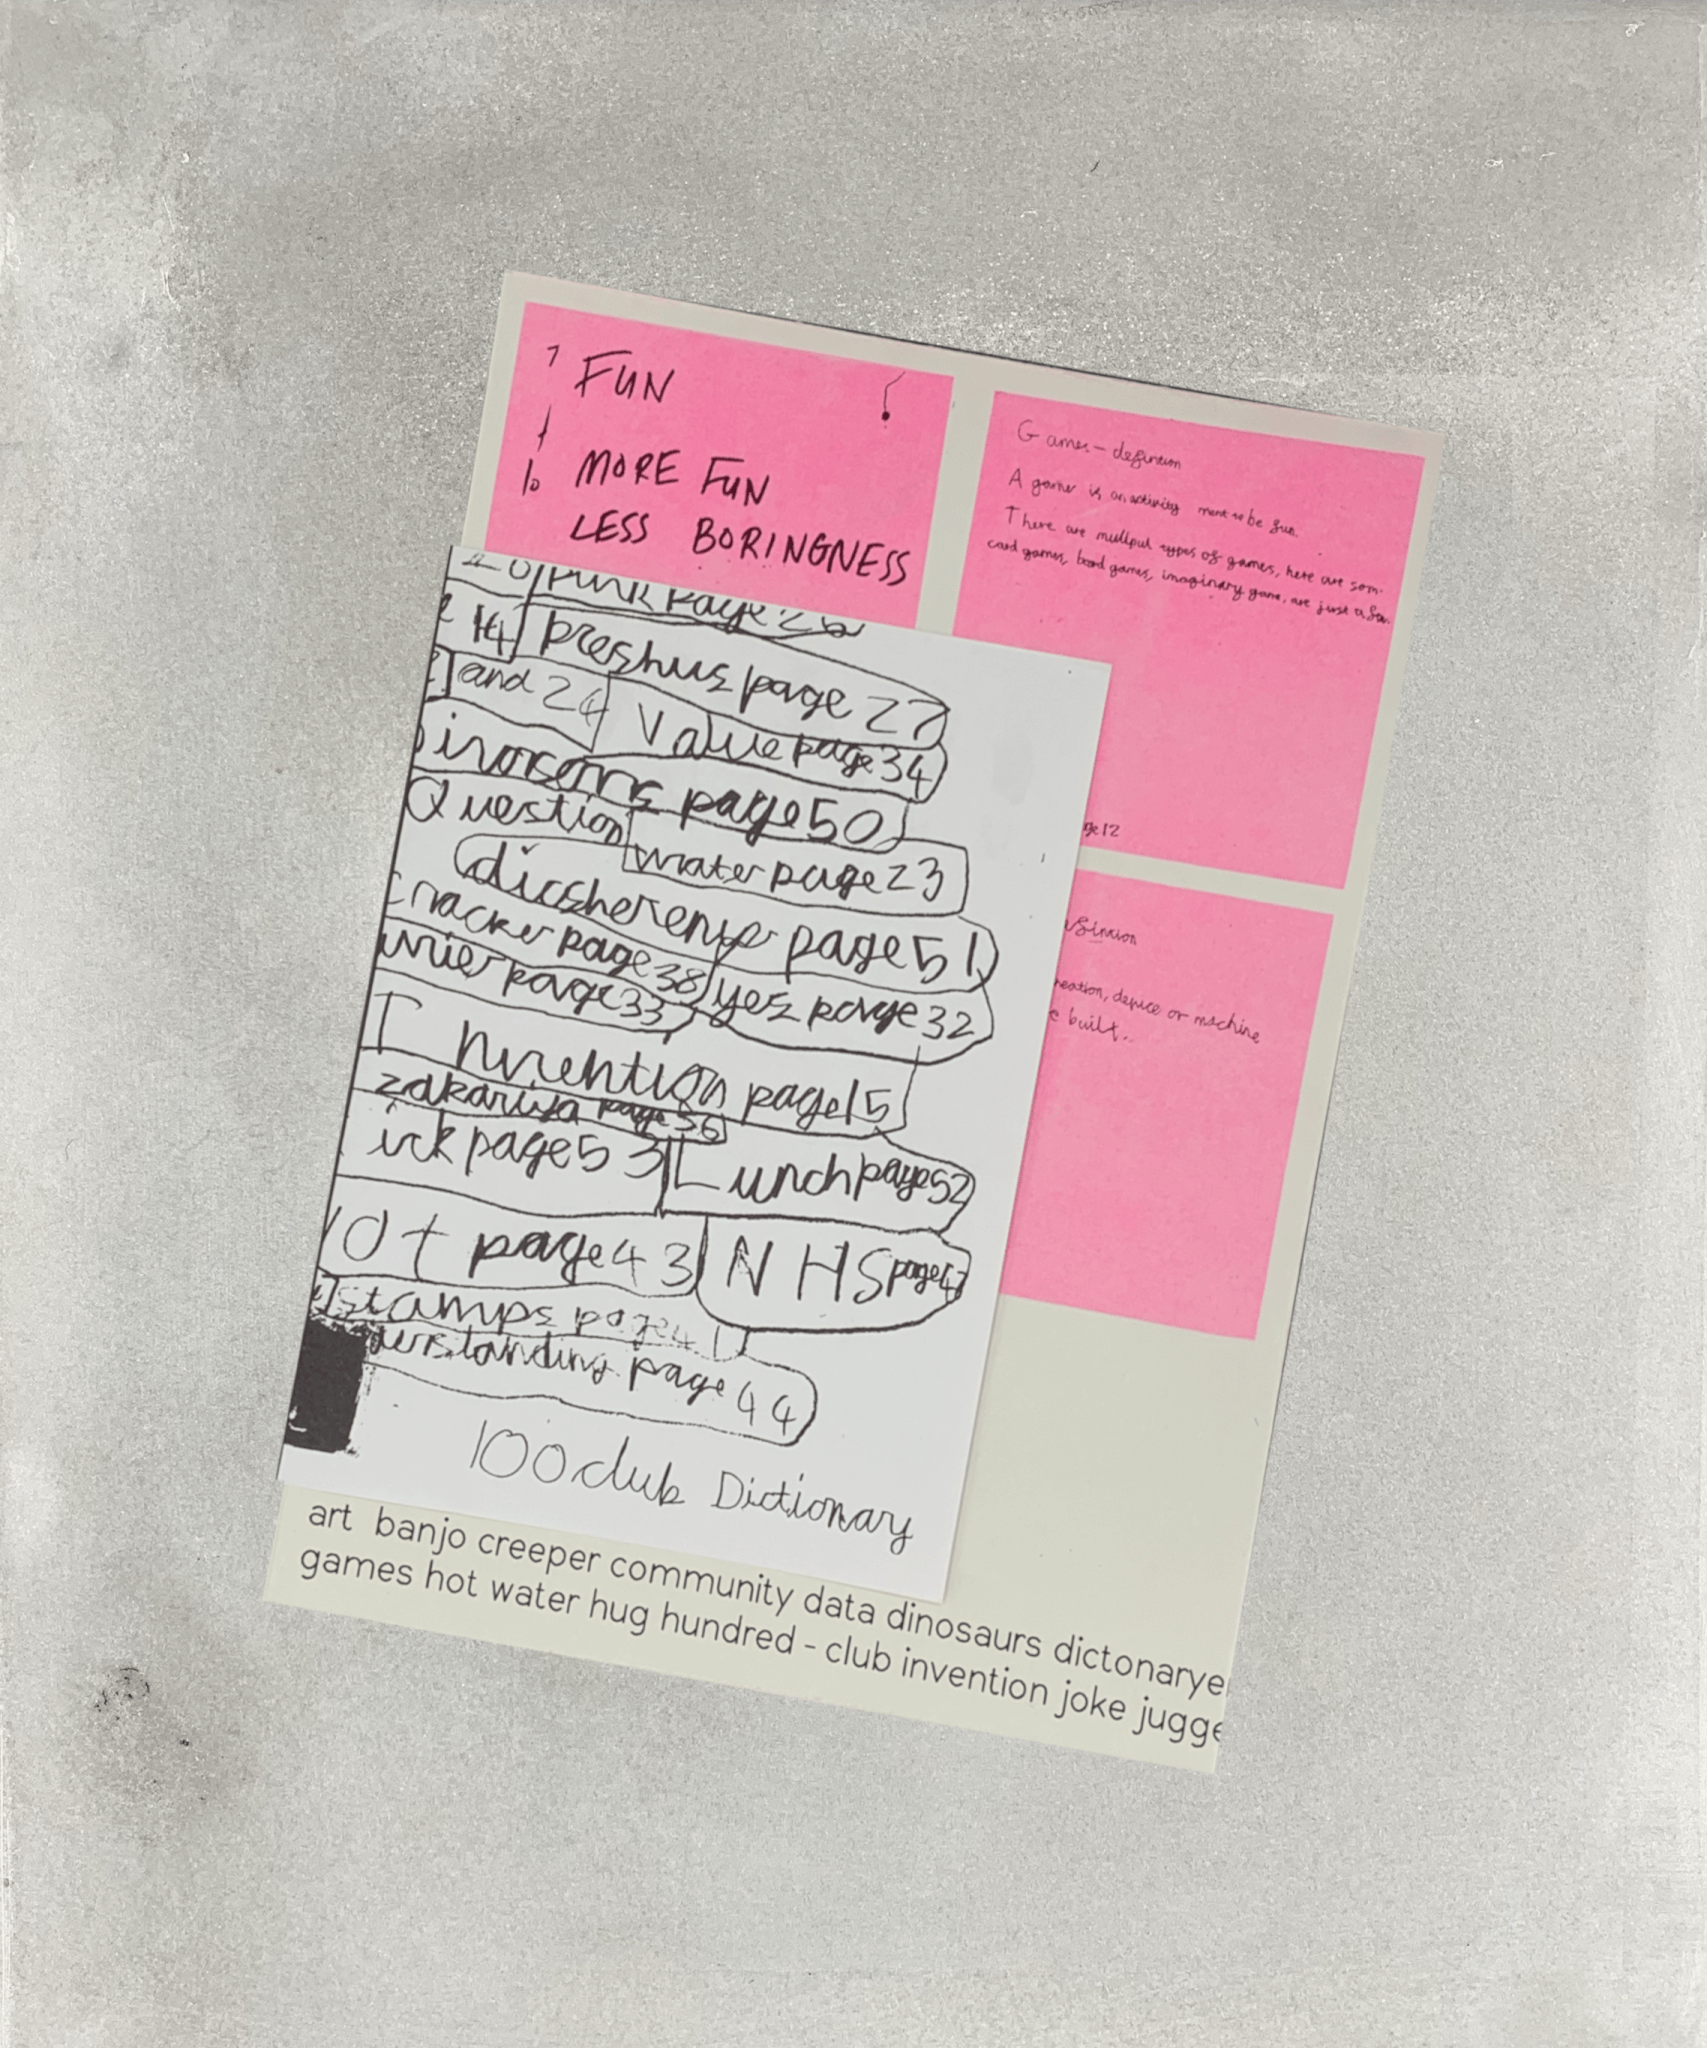 FUN
MORE FUN
LESS BORINGNESS
Games - defintion
A game is an activity ment to be fun.
There are mulipul types of games, here are som
card games, board games, imaginary game, are just a few
ge 12
reation, device or machine
e built..
Pink page 26
14
preshus page 27
and 24
Value page 34
page 50
Question
water page 23
page 51
cracker page 38
page 33
yes page 32
Invention page 15
zakariya page 56
ick page 53
Lunch page 52
ot page 43
NHS page 47
stamps page 41
derstanding page 44
100 club Dictionary
art banjo creeper community data dinosaurs dictonarye
games hot water hug hundred - club invention joke jugge